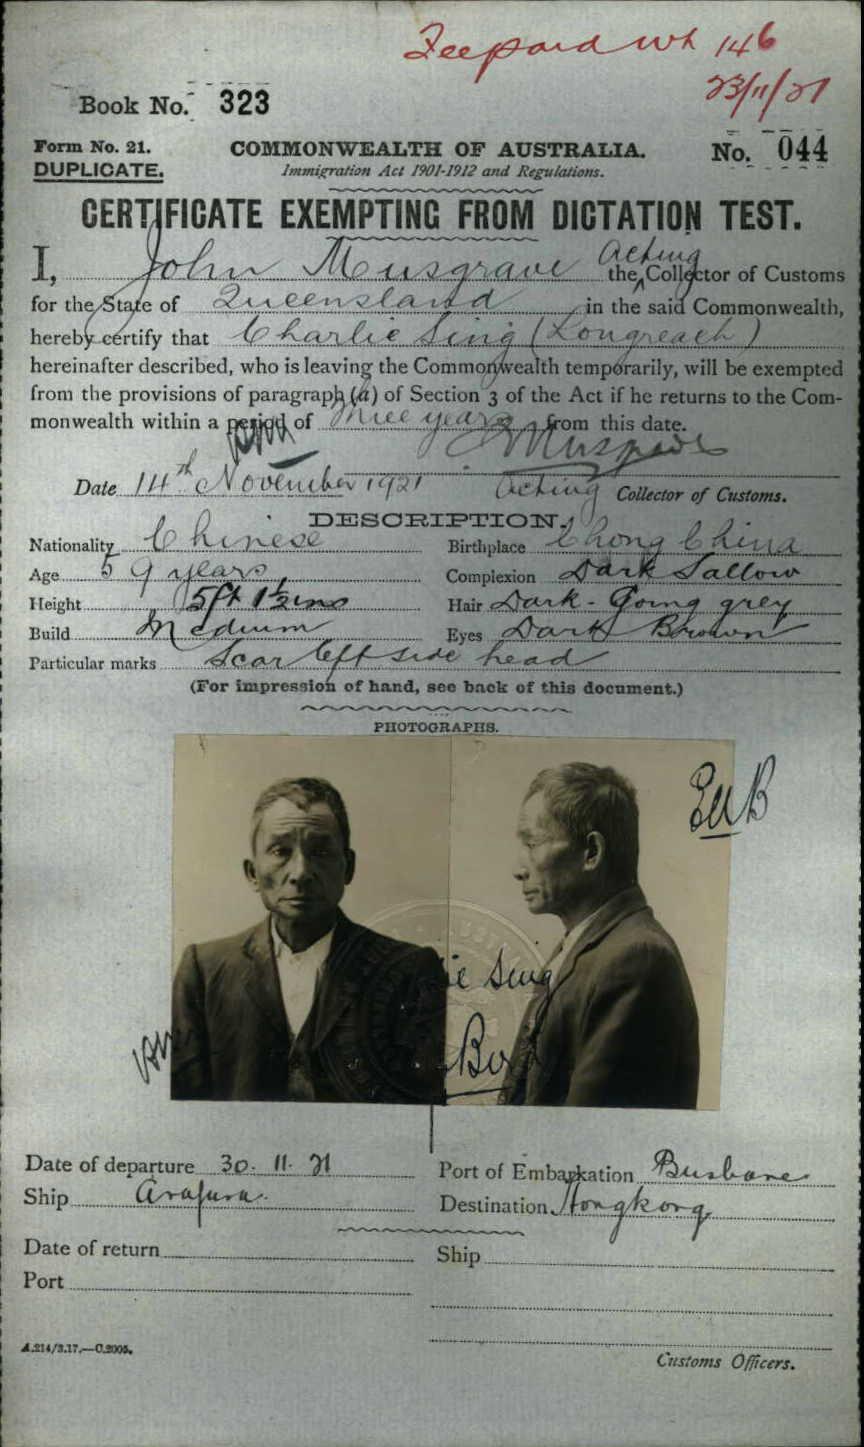 Fee paid wh 146
23/11/21
Book No. 323
Form No. 21.
COMMONWEALTH OF AUSTRALIA.
No. 044
DUPLICATE.
Immigration Act 1901-1912 and Regulations.
CERTIFICATE EXEMPTING FROM DICTATION TEST.
I, John Musgrave the Acting Collector of Customs
for the State of Queensland in the said Commonwealth,
hereby certify that Charlie Sing (Longreach)
hereinafter described, who is leaving the Commonwealth temporarily, will be exempted
from the provisions of paragraph (a) of Section 3 of the Act if he returns to the Com-
monwealth within a period of three years from this date.
Musgrave
Date 14th November 1921
Acting Collector of Customs.
DESCRIPTION.
Nationality Chinese
Birthplace Chong China
Age 59 years
Complexion Dark Sallow
Height 5ft 1½ins
Hair Dark - Going grey
Build Medium
Eyes Dark Brown
Particular marks Scar left side head
(For impression of hand, see back of this document.)
PHOTOGRAPHS.
ie Sing
Date of departure 30. 11. 21
Port of Embarkation Brisbane
Ship Arafura.
Destination Hongkong
Date of return
Ship
Port
A.214/3.17.—C.2005.
Customs Officers.